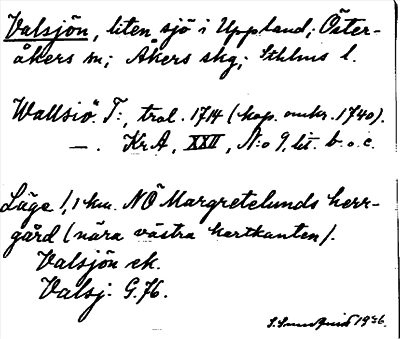 Valsjön, liten sjö i Uppland; Öster-
åkers sn; Åkers skg; Sthlms l.
"Wallsiö" T:, tral. 1714 (kop. omkr. 1740).
— . KrA, XXII, N:o 9, lit. b. o. c.
Läge 1,1 km. NÖ Margretelunds herr-
gård (nära västra kartkanten).
Valsjön ek.
Valsj: G. 76.
1936.